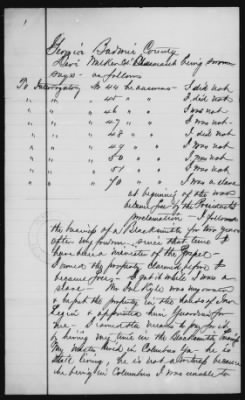 1
Georgia Baldwin County
Levi Walker being sworn
says - as follows
To Interrogatory No 44 he answers - I did not
" " 45 " " - I did not
" " 46 " " - I was not
" " 47 " " - I was not
" " 48 " " - I did not
" " 49 " " - I was not
" " 50 " " - I was not
" " 51 " " - I was not
" " 70 " " - I was a slave
at beginning of the war
became free by the Presidents
proclamation - I followed
the business of a Blacksmith for two years
after my freedom - since that time I
have been a minister of the Gospel -
I owned the property claimed before I
became free - I got it while I was a
slave - Mr Kyle was my owner
& kept the property in the
& appointed him Guardian for
me - I earned the means to pay for it
by hiring my time in the Blacksmith business
My master lived in Columbus Ga - he is
still living, he is not a witness because
he being in Columbus I was unable to